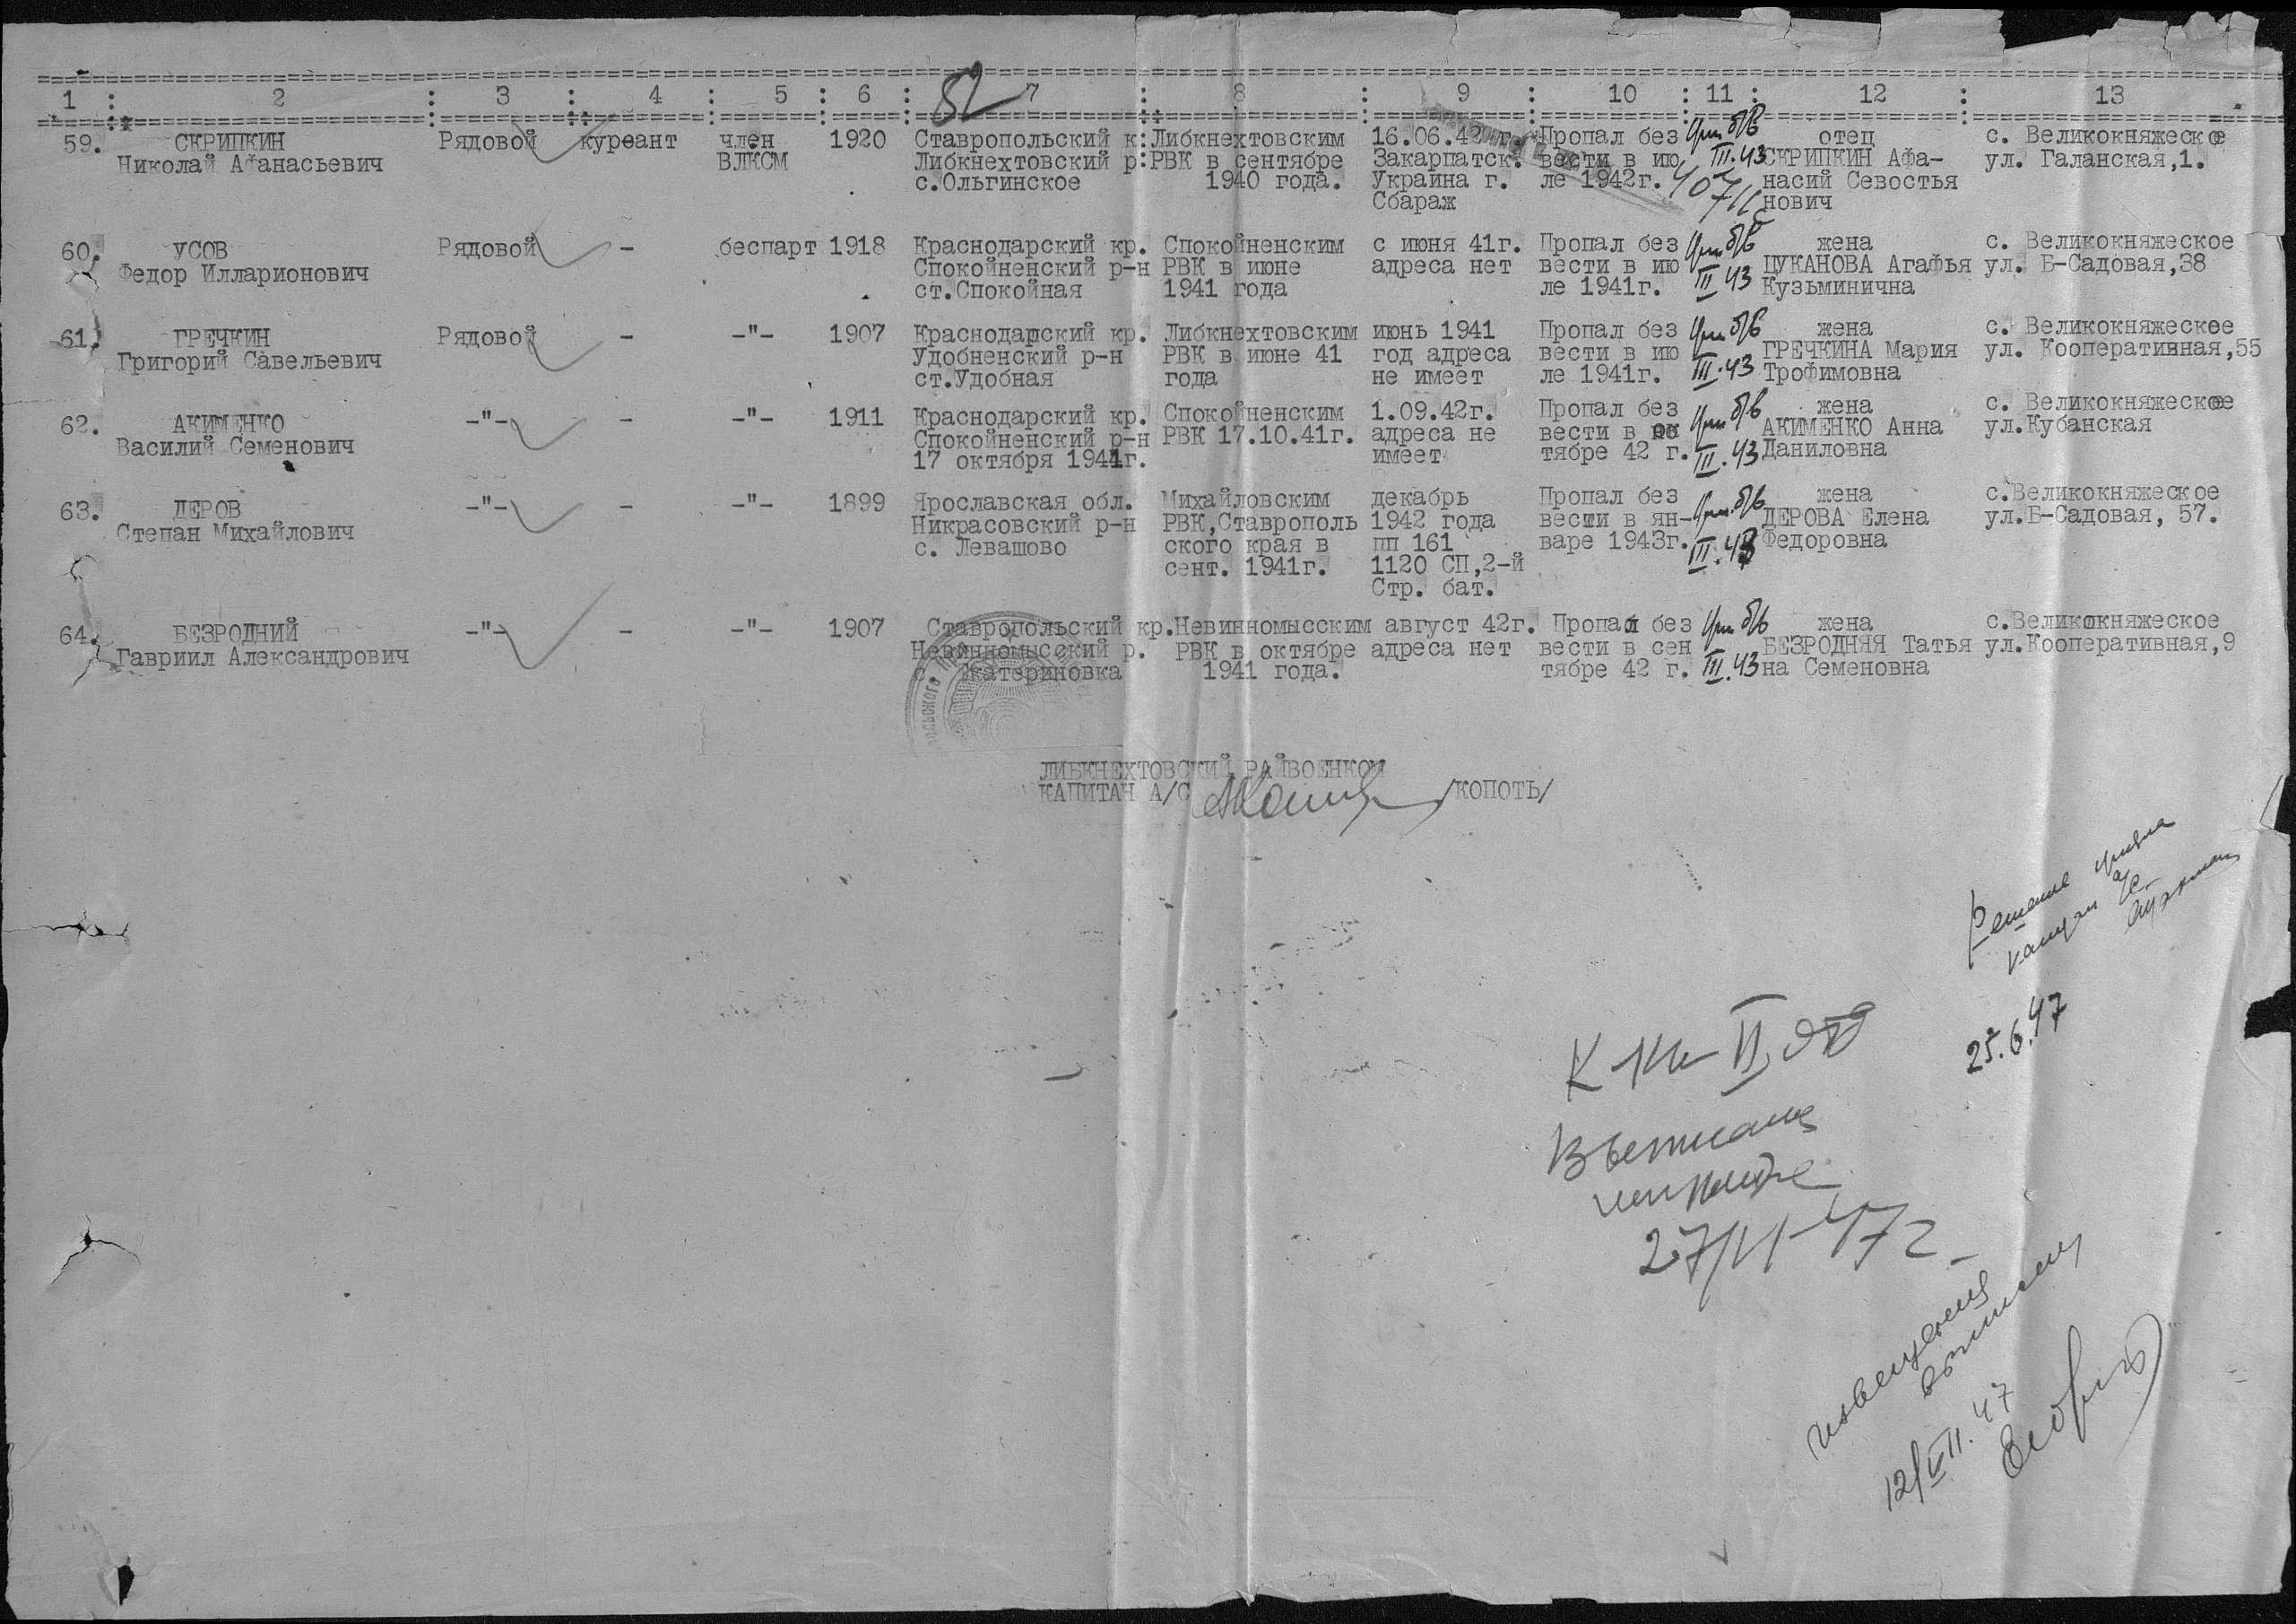 1 : 2 : 3 : 4 : 5 : 6 : 7 : 8 : 9 : 10 : 11 : 12 : 13
52
59. СКРИПКИН Рядовой куреант член 1920 Ставропольский к: Либкнехтовским 16.06.42 г. Пропал без отец с. Великокняжеское
Николай Афанасьевич ВЛКСМ Либкнехтовский р: РВК в сентябре Закарпатск. вести в ию III.43 СКРИПКИН Афа- ул. Галанская,1.
с.Ольгинское 1940 года. Украина г. ле 1942г. насий Севостья
Сбараж нович
60. УСОВ Рядовой - беспарт 1918 Краснодарский кр. Спокойненским с июня 41г. Пропал без жена с. Великокняжеское
Федор Илларионович Спокойненский р-н РВК в июне адреса нет вести в ию III 43 ЦУКАНОВА Агафья ул. Б-Садовая,38
ст.Спокойная 1941 года ле 1941г. Кузьминична
61. ГРЕЧКИН Рядовой - -"- 1907 Краснодарский кр. Либкнехтовским июнь 1941 Пропал без жена с. Великокняжеское
Григорий Савельевич Удобненский р-н РВК в июне 41 год адреса вести в ию ГРЕЧКИНА Мария ул. Кооперативная,55
ст.Удобная года не имеет ле 1941г. III.43 Трофимовна
62. АКИМЕНКО -"- - -"- 1911 Краснодарский кр. Спокойненским 1.09.42г. Пропал без жена с. Великокняжеское
Василий Семенович Спокойненский р-н РВК 17.10.41г. адреса не вести в ок АКИМЕНКО Анна ул.Кубанская
17 октября 1941г. имеет тябре 42 г. III.43 Даниловна
63. ДЕРОВ -"- - -"- 1899 Ярославская обл. Михайловским декабрь Пропал без жена с.Великокняжеское
Степан Михайлович Никрасовский р-н РВК,Ставрополь 1942 года вести в ян- ДЕРОВА Елена ул.Б-Садовая, 57.
с. Левашово ского края в пп 161 варе 1943г. III.43 Федоровна
сент. 1941г. 1120 СП,2-й
Стр. бат.
64. БЕЗРОДНИЙ -"- - -"- 1907 Ставропольский кр. Невинномысским август 42г. Пропал без жена с.Великокняжеское
Гавриил Александрович Невинномысский р. РВК в октябре адреса нет вести в сен БЕЗРОДНЯЯ Татья ул.Кооперативная,9
с. Екатериновка 1941 года. тябре 42 г. III.43 на Семеновна
ЛИБКНЕХТОВСКИЙ РАЙВОЕНКОМ
КАПИТАН А/С /КОПОТЬ/
25.6.47
27/VI-47г
извещения
выписаны
12/VII.47